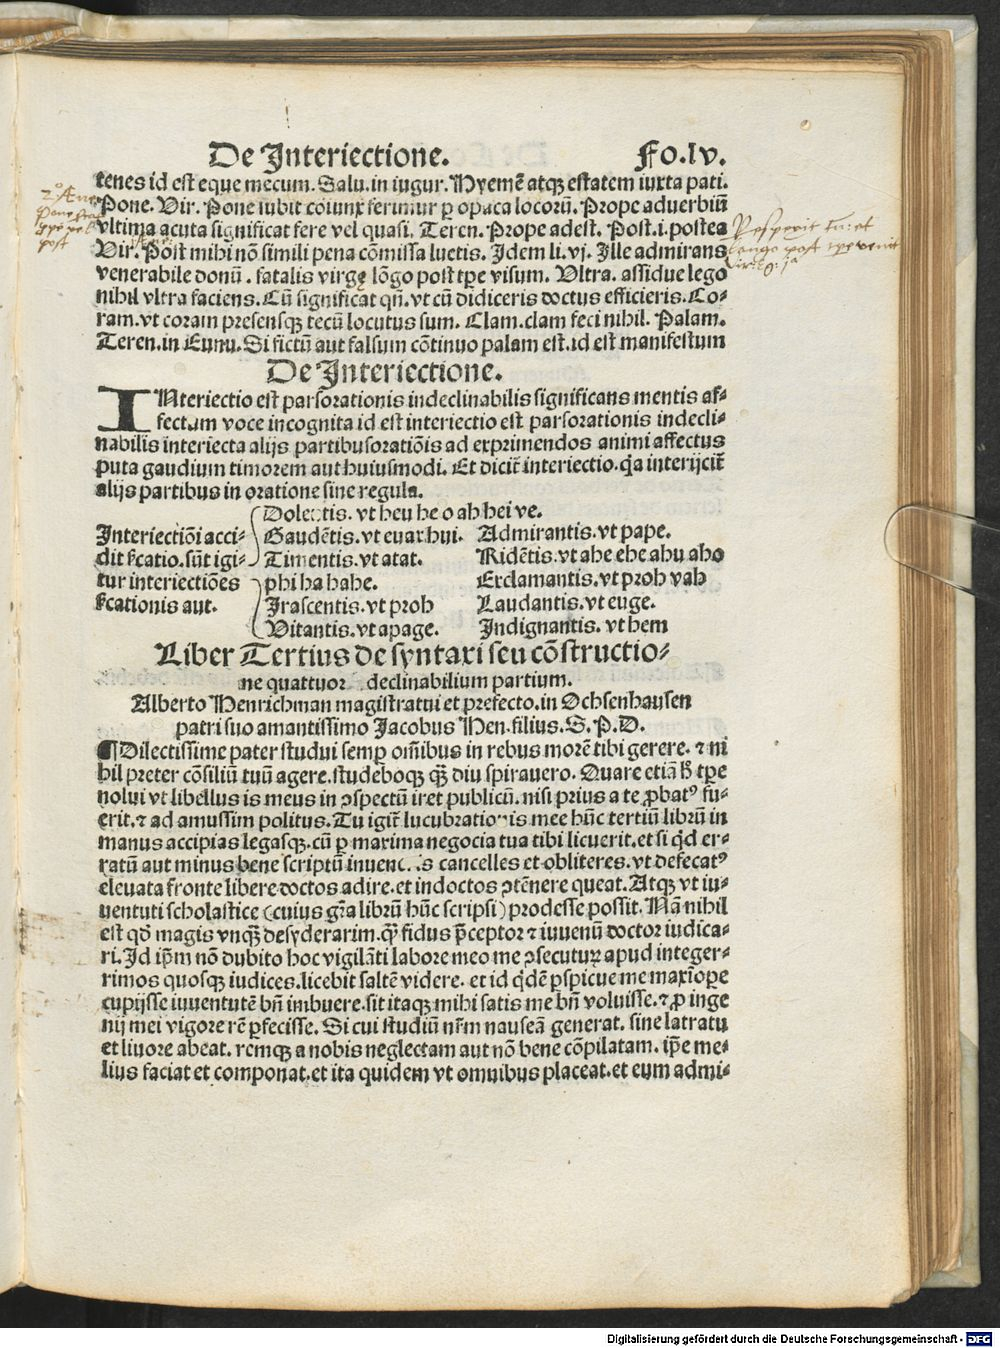 De Interiectione. Fo.lv.
tenes id est eque mecum. Salu. in iugur. Hyemē atqꝫ estatem iuxta pati.
Pone. Vir. Pone subit coiunx ferimur ꝑ opaca locorū. Prope aduerbiū
vltima acuta significat fere vel quasi. Teren. Prope adest. Post .i. postea
Vir. Post mihi nō simili pena cōmissa luetis. Idem li. vj. Ille admirans
venerabile donū . fatalis virgę lōgo post tꝑe visum. Vltra. assidue lego
nihil vltra faciens. Cū significat qn̄. vt cū didiceris doctus efficieris. Co-
ram. vt coram presensqꝫ tecū locutus sum. Clam. clam feci nihil. Palam.
Teren. in Eunu. Si fictū aut falsum cōtinuo palam est. id est manifestum
De Interiectione.
INteriectio est parsorationis indeclinabilis significans mentis af-
fectum voce incognita id est interiectio est parsorationis indecli-
nabilis interiecta alijs partibusoratiōis ad exprimendos animi affectus
puta gaudium timorem aut huiusmodi. Et dicit̄ interiectio. q̄a interijcit̄
alijs partibus in oratione sine regula.
Interiectiōi acci-
dit scatio. sūt igi-
tur interiectiōes
scationis aut.
Dolentis. vt heu he o ah hei ve.
Gaudētis. vt euax hui. Admirantis. vt pape.
Timentis. vt atat. Ridētis. vt ahe ehe ahu aho
phi ha hahe. Exclamantis. vt proh vah
Irascentis. vt proh Laudantis. vt euge.
Vitantis. vt apage. Indignantis. vt hem
Liber Tertius de syntaxi seu cōstructio-
ne quattuor declinabilium partium.
Alberto Henrichman magistratui et prefecto. in Ochsenhausen
patri suo amantissimo Jacobus Hen. filius. S. P. D.
¶Dilectissime pater studui semꝑ om̄ibus in rebus morē tibi gerere. ⁊ ni
hil preter cōsiliū tuū agere. studeboqꝫ q̄ꝫ diu spirauero. Quare etiā h̄ tꝑe
nolui vt libellus is meus in ꝯspectū iret publicū. nisi prius a te ꝓbatꝰ fu-
erit. ⁊ ad amussim politus. Tu igit̄ lucubrationis mee hūc tertiū librū in
manus accipias legasqꝫ. cū ꝑ maxima negocia tua tibi licuerit. et si q̇d er-
ratū aut minus bene scriptū inueneris cancelles et obliteres. vt defecatꝰ
eleuata fronte libere doctos adire. et indoctos ꝯtēnere queat. Atqꝫ vt iu-
uentuti scholastice (cuius gr̄a librū hūc scripsi) prodesse possit. Nā nihil
est qd̄ magis vnq̄ꝫ desyderarim. q̄ꝫ fidus p̄ceptor ⁊ iuuenū doctor iudica-
ri. Id ip̄m nō dubito hoc vigilāti labore meo me ꝯsecuturꝫ apud integer-
rimos quosqꝫ iudices. licebit saltē videre. et id q̇dē ꝑspicue me maxīopere
cupijsse iuuentutē bn̄ imbuere. sit itaqꝫ mihi satis me bn̄ voluisse. ⁊ ꝓ inge
nij mei vigore rē ꝑfecisse. Si cui studiū nr̄m nauseā generat. sine latratu
et liuore abeat. remqꝫ a nobis neglectam aut nō bene cōpilatam. ip̄e me-
lius faciat et componat. et ita quidem vt omnibus placeat. et eum admi-
post
Respexit tn̄: et
longo post tp̄e venit
Digitalisierung gefördert durch die Deutsche Forschungsgemeinschaft - DFG